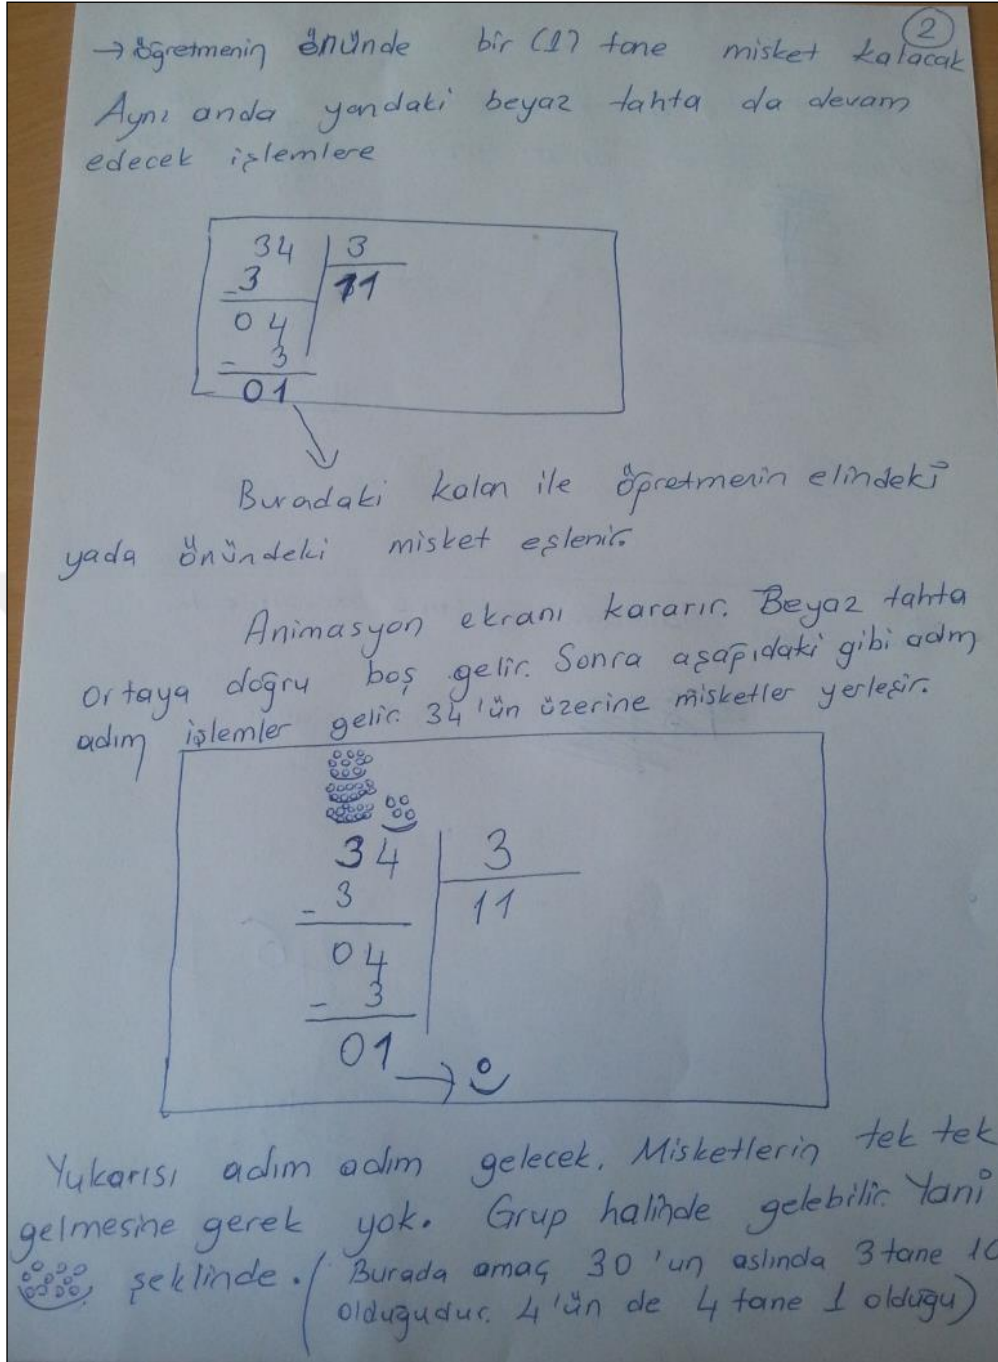 2
→ öğretmenin önünde bir (1) tane misket kalacak
Aynı anda yandaki beyaz tahta da devam
edecek işlemlere
34 | 3
-3 11
04
- 3
01
Buradaki kalan ile öğretmenin elindeki
yada önündeki misket eşlenir.
Animasyon ekranı kararır. Beyaz tahta
ortaya doğru boş gelir. Sonra aşağıdaki gibi adım
adım işlemler gelir. 34'ün üzerine misketler yerleşir.
34 | 3
- 3 11
04
- 3
01 →
Yukarısı adım adım gelecek. Misketlerin tek tek
gelmesine gerek yok. Grup halinde gelebilir. Yani
şeklinde. ( Burada amaç 30'un aslında 3 tane 10
olduğudur. 4'ün de 4 tane 1 olduğu)